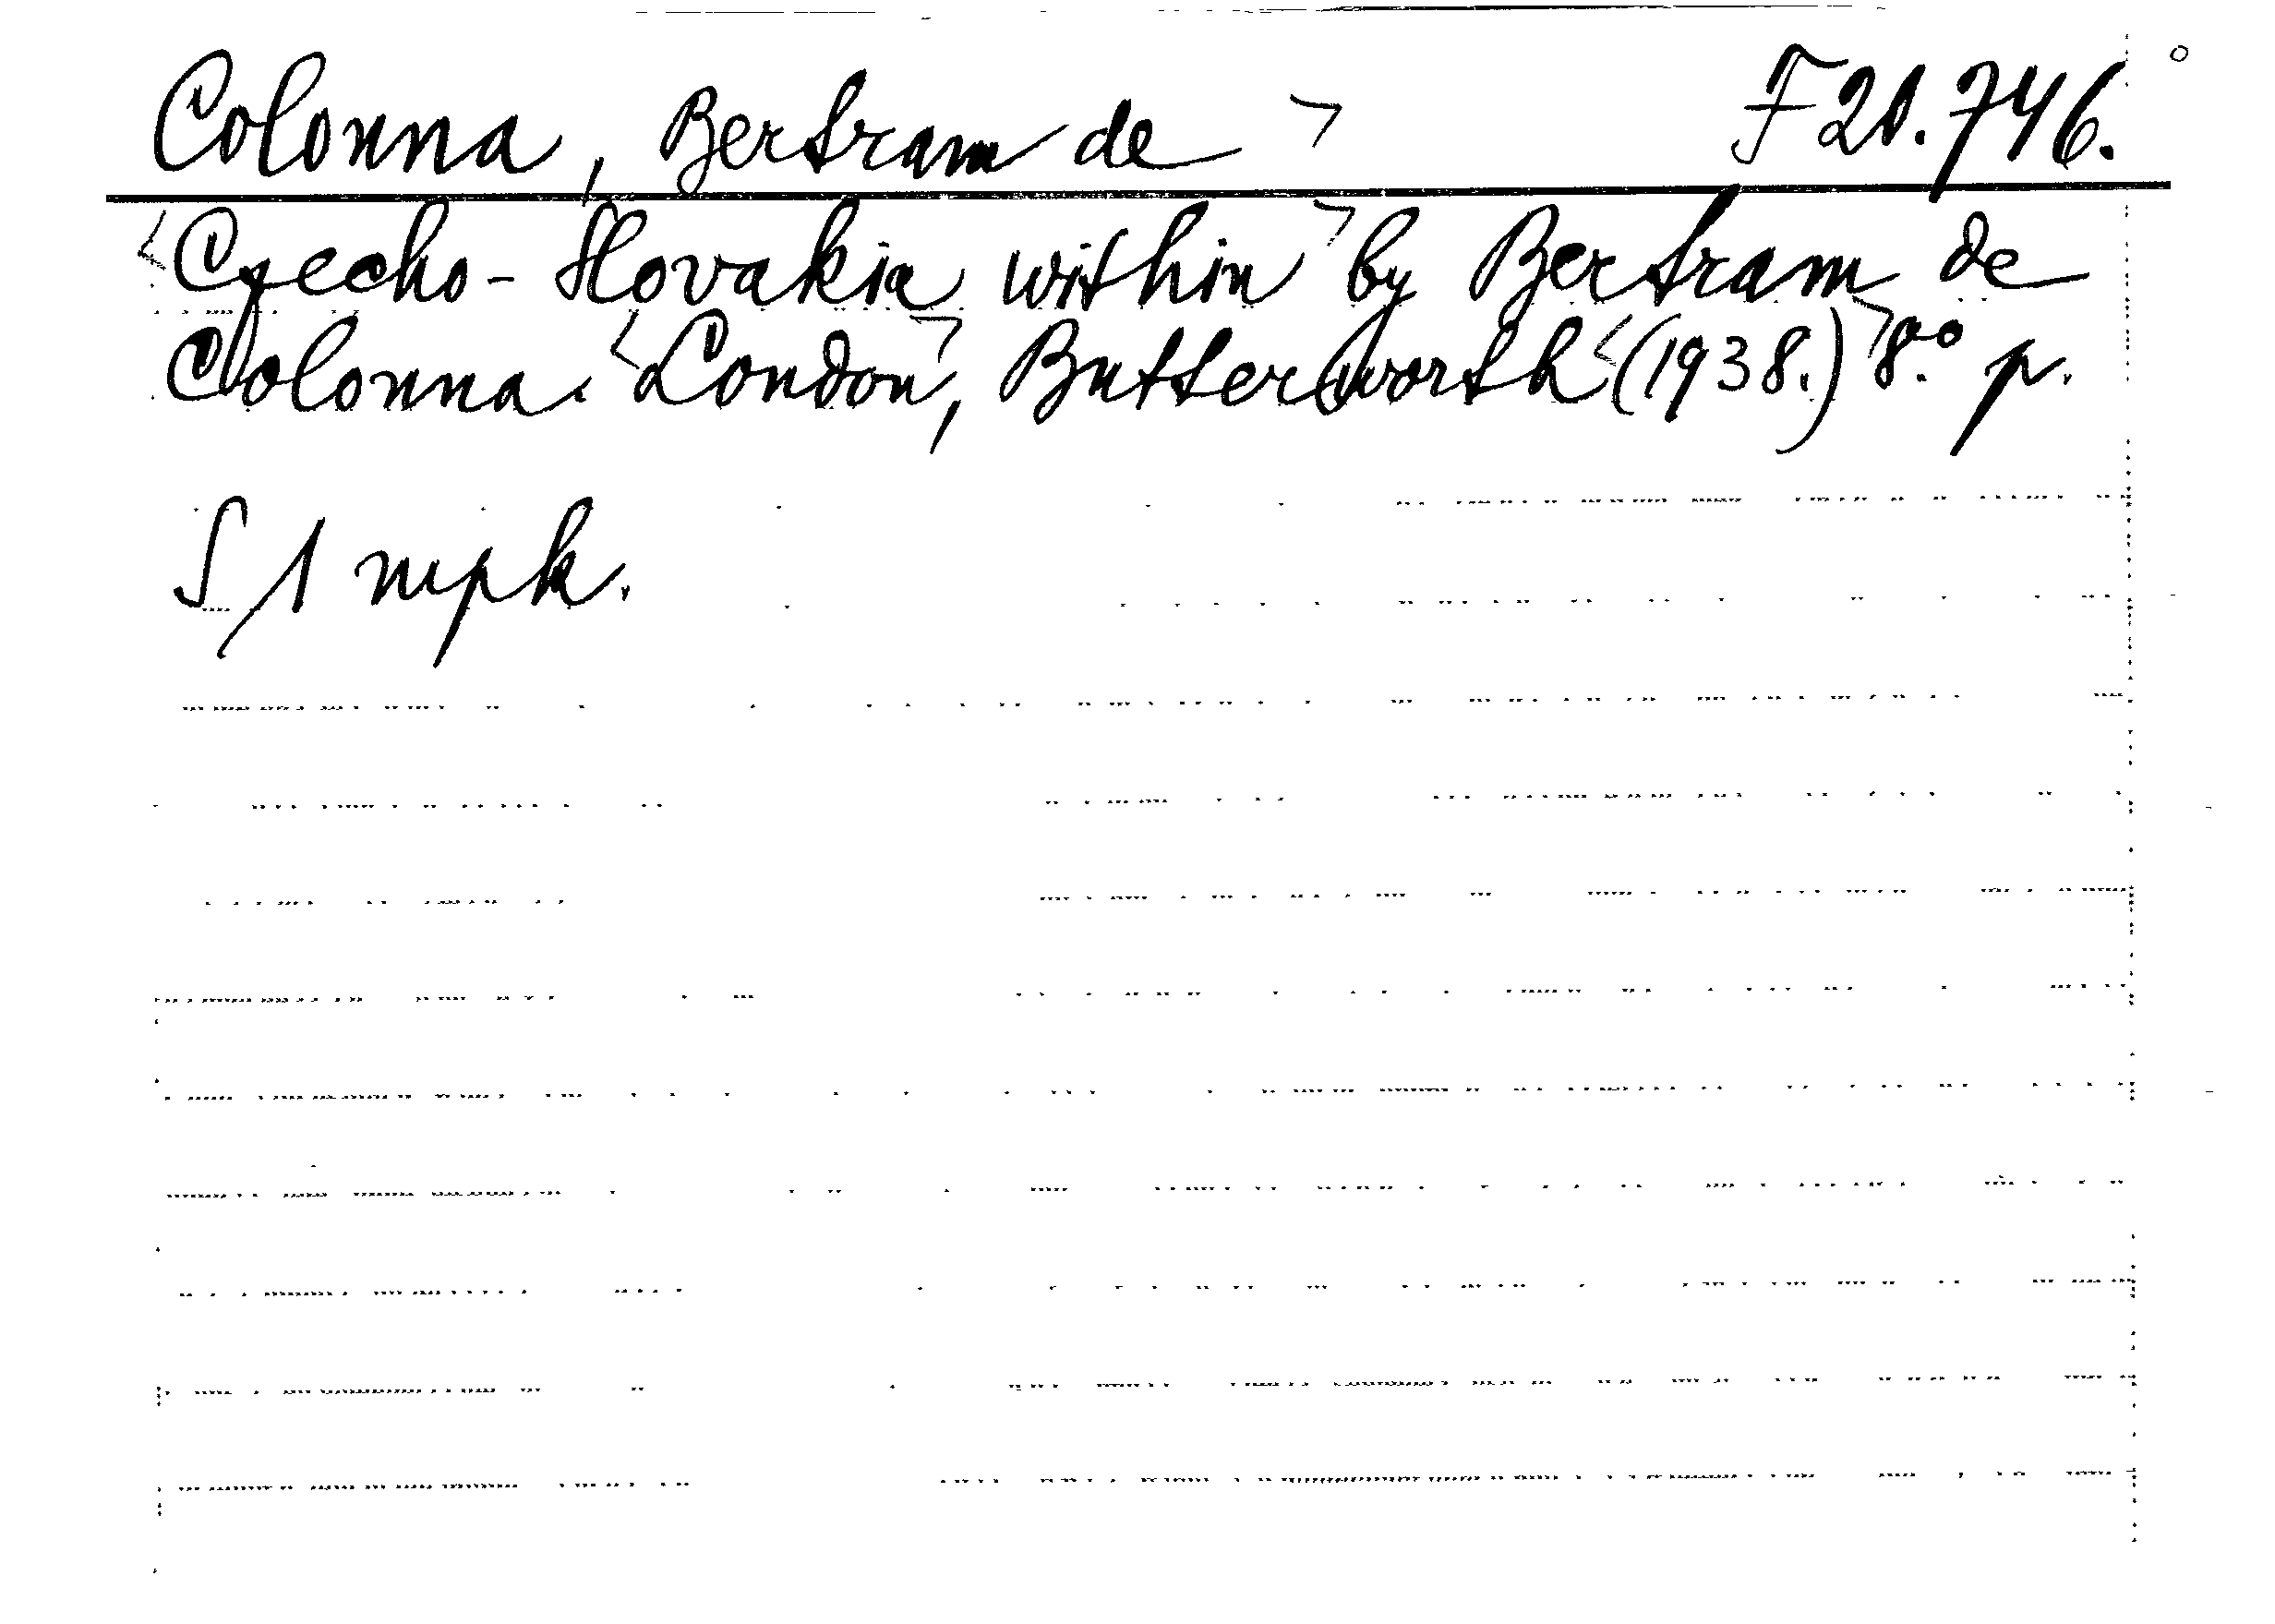 Colonna, Bertram de F 20.746.
Czecho-Slovakia within by Bertram de
Colonna. London, Butterworth (1938.) 8.° p.
S/1 mpk.